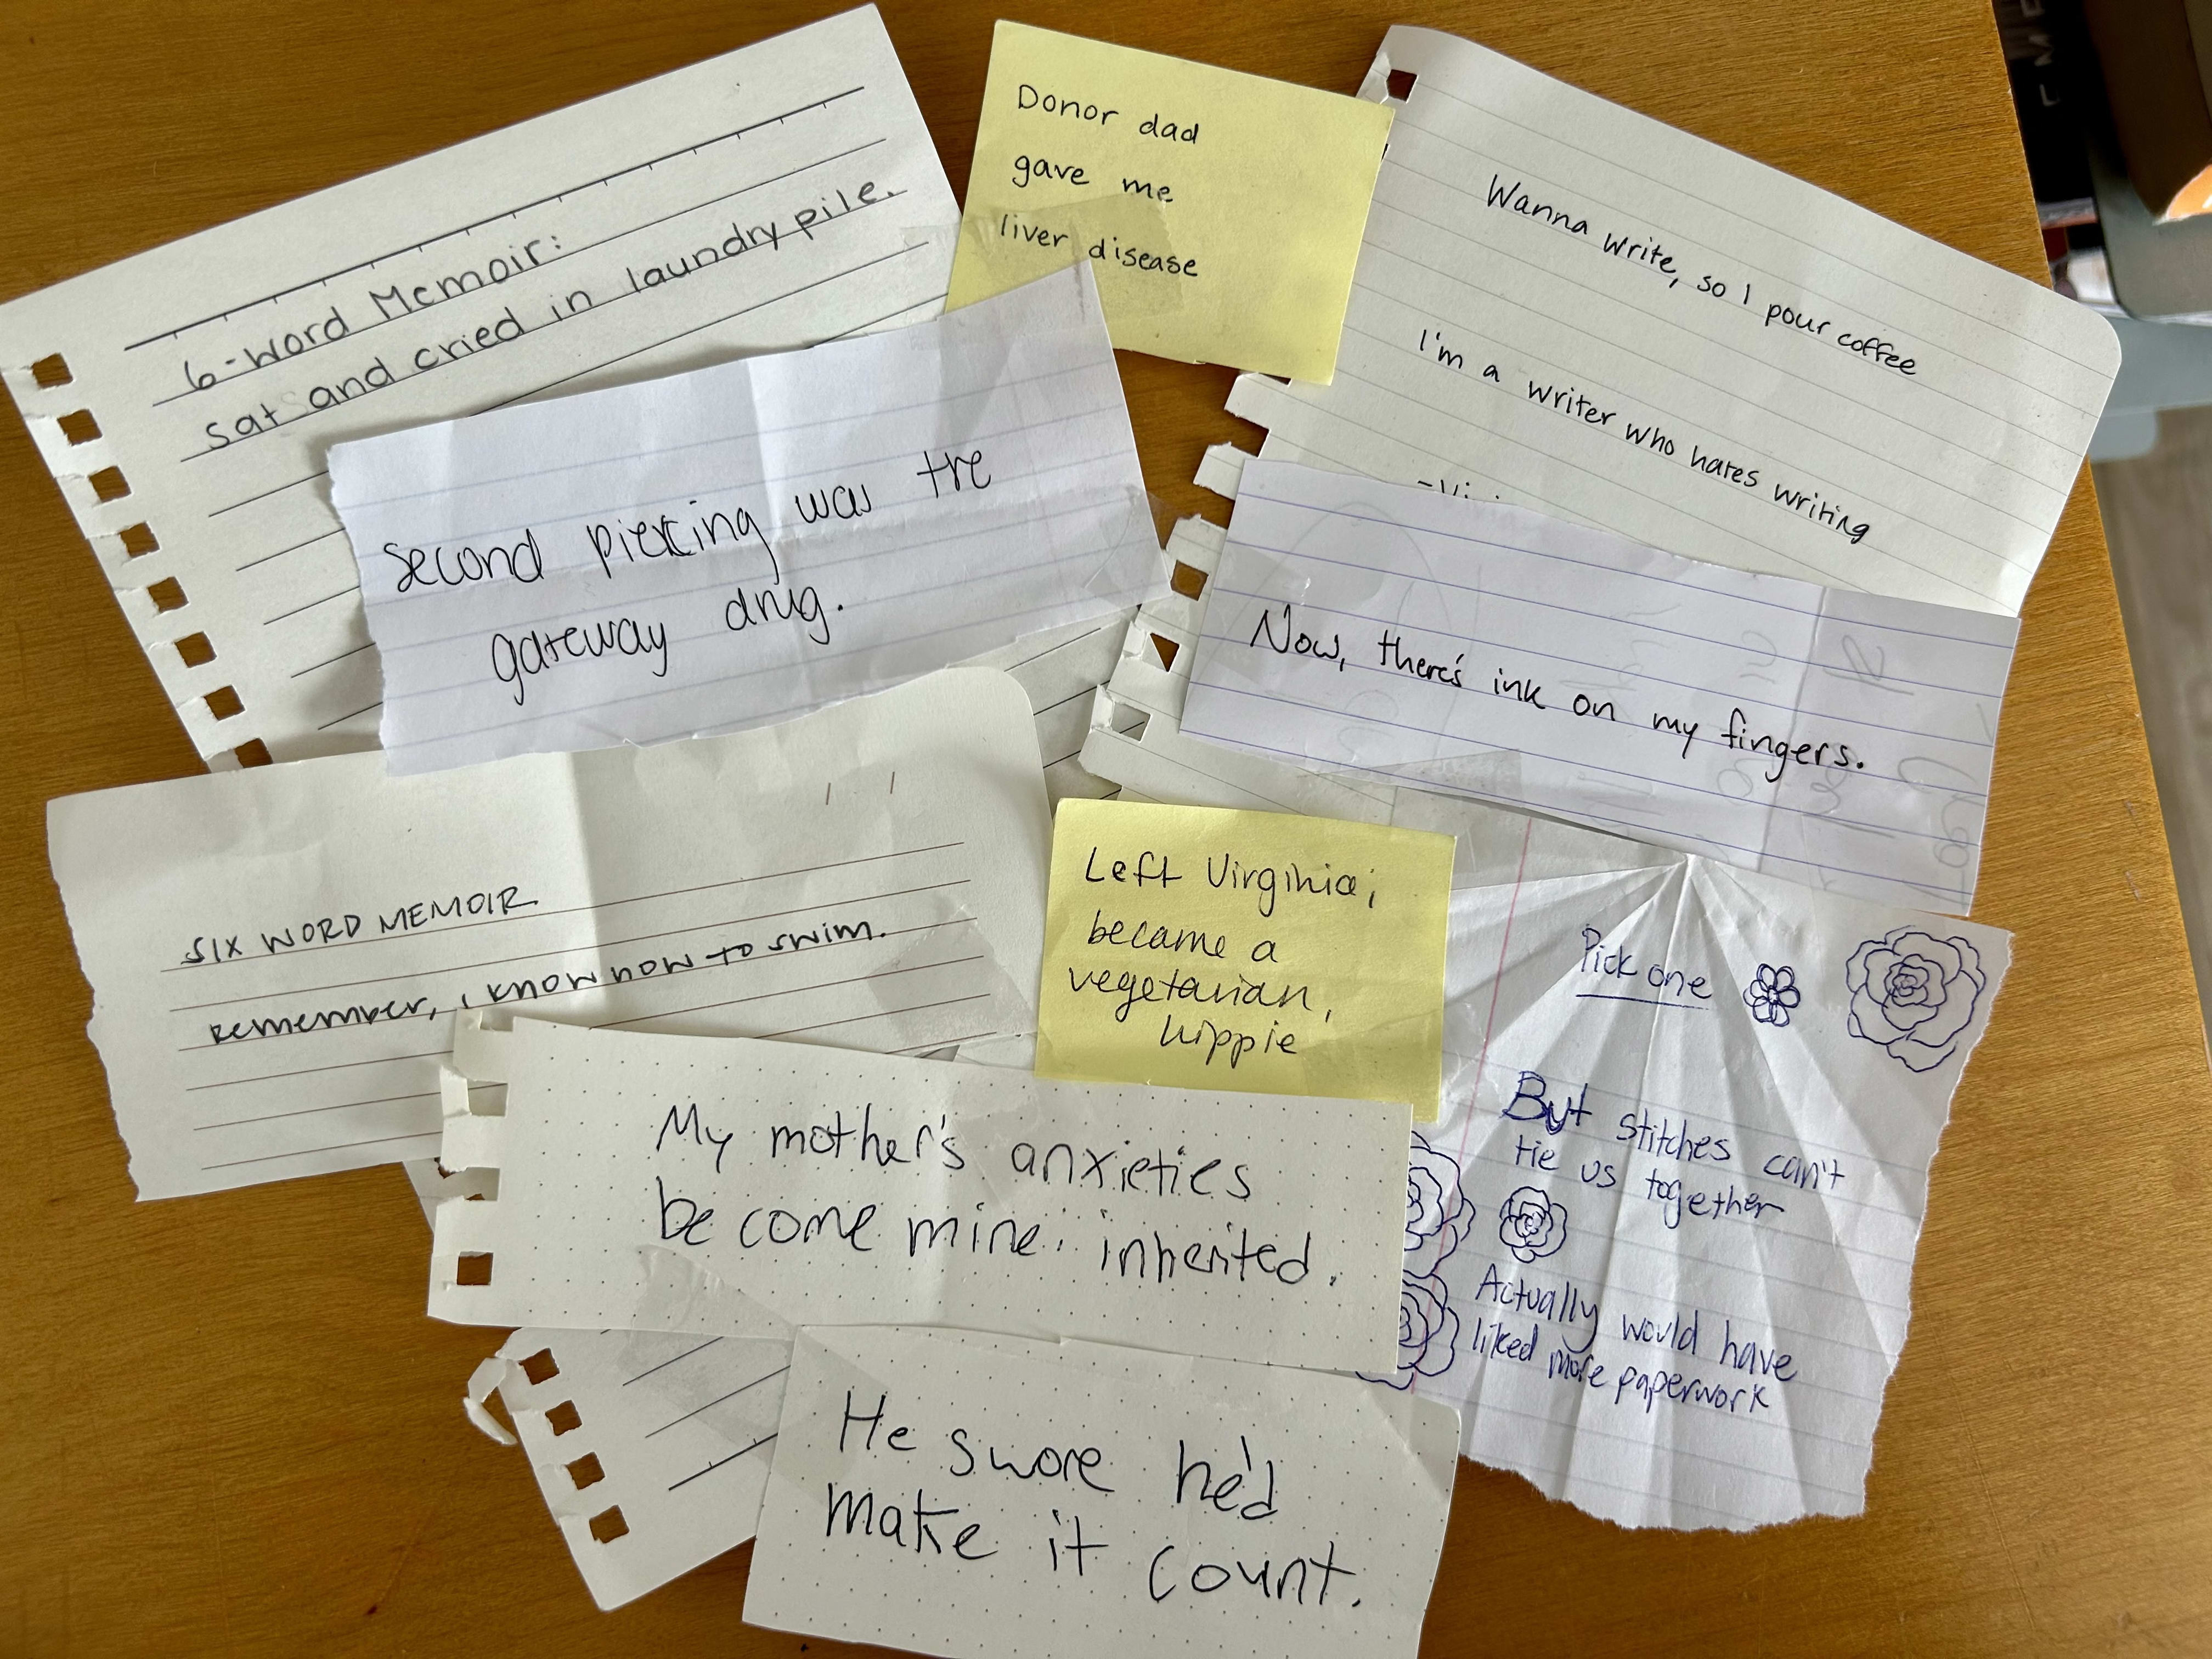 6-Word Memoir:
sat and cried in laundry pile.
Donor dad
gave me
liver disease
Wanna write, so I pour coffee
I'm a writer who hates writing
second piercing was the
gateway drug.
Now, there's ink on my fingers.
SIX WORD MEMOIR
remember, i know how to swim.
Left Virginia;
became a
vegetarian,
hippie
Pick one
But stitches can't
tie us together
Actually would have
liked more paperwork
My mother's anxieties
become mine: inherited.
He swore he'd
make it count.